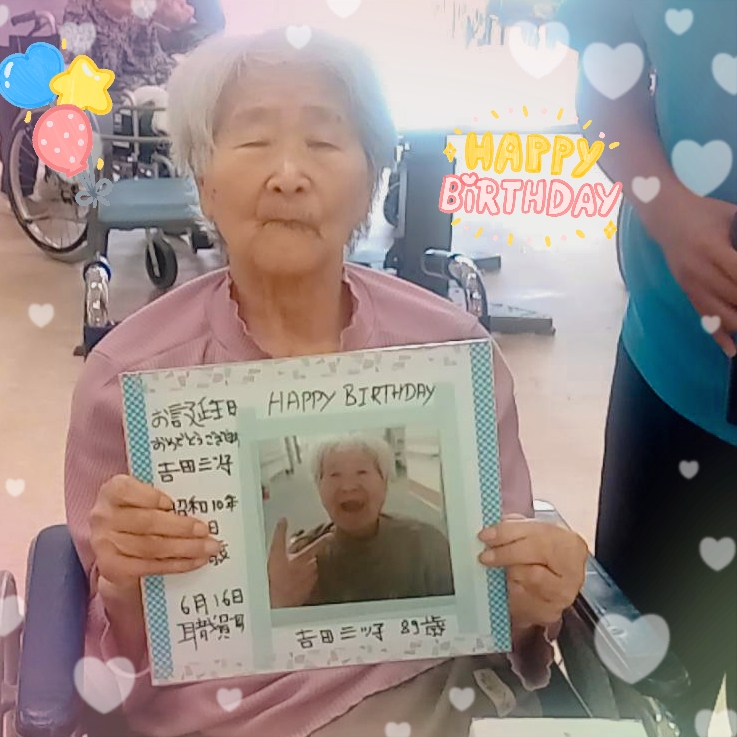 HAPPY
BIRTHDAY
HAPPY BIRTHDAY
お誕生日
おめでとうござい
吉田三ツ子
昭和10年
日
6月16日
職員
吉田三ツ子 89歳